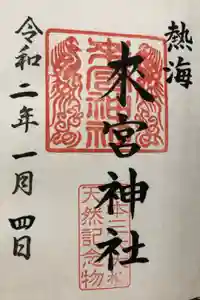 熱海
來宮神社
令和二年一月四日
來宮神社
天然記念物